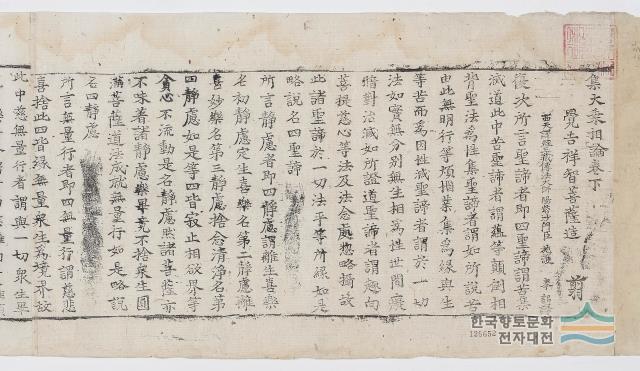 集大乘相論卷下
覺吉祥智菩薩造 翔
傳法大師賜紫沙門臣施護 奉 詔譯
復次所言聖諦者即四聖諦謂苦集
滅道此中苦聖諦者謂蘊等顛倒相
背聖法為性集聖諦者謂如所說苦
由此無明行等煩惱業集為緣與生
等苦而為因性滅聖諦者謂於一切
法如實無分別無生相為性世間癡
暗對治滅如所證道聖諦者謂趣向
菩提慈心等法及法念處惣略攝故
此諸聖諦於一切法平等所緣如是
略說名四聖諦
所言靜慮者即四靜慮謂離生喜樂
名初靜慮定生喜樂名第二靜慮離
喜妙樂名第三靜慮捨念清淨名第
四靜慮如是等四皆寂止相欲界等
貪心不流動是名靜慮然諸菩薩亦
不味著諸靜慮樂畢竟不捨衆生圓
滿菩薩道法成就無量行如是略說
名四靜慮
所言無量行者即四無量行謂慈悲
喜捨此四皆緣無量衆生為境界故
此中慈無量行者謂與一切衆生畢
한국향토문화
전자대전
125652